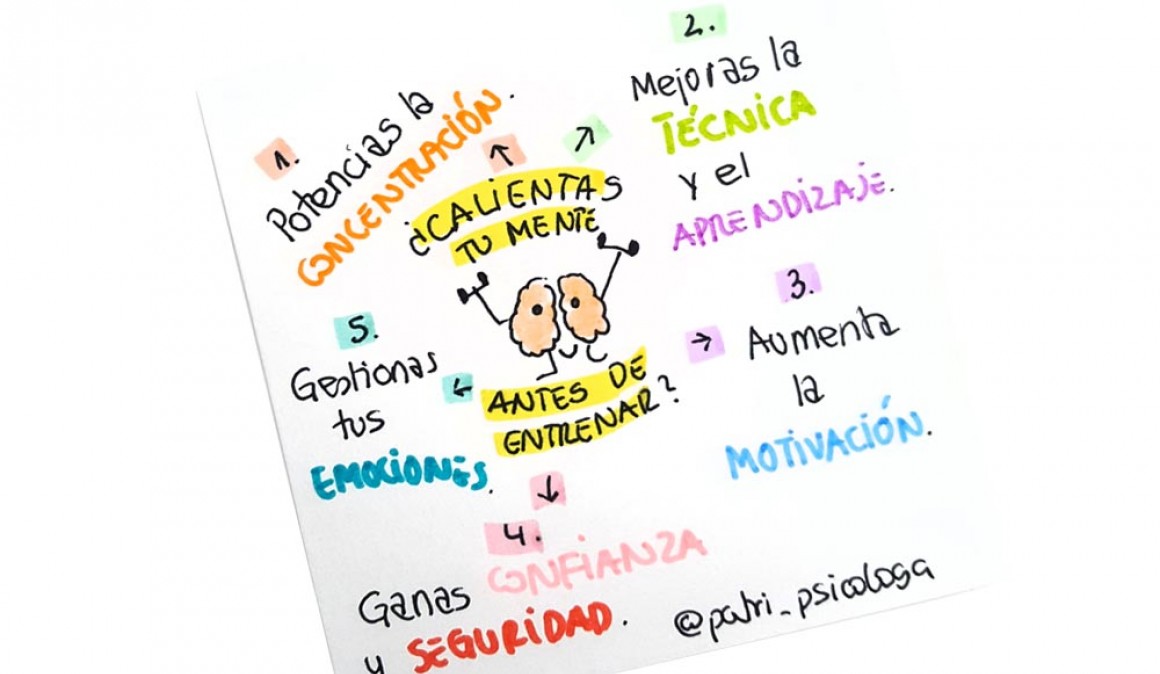 ¿CALIENTAS
TU MENTE
ANTES DE
ENTRENAR?
1.
Potencias la
CONCENTRACIÓN.
2.
Mejoras la
TÉCNICA
y el
APRENDIZAJE.
3.
Aumenta
la
MOTIVACIÓN.
4.
Ganas CONFIANZA
y SEGURIDAD.
5.
Gestionas
tus
EMOCIONES.
@patri_psicologa